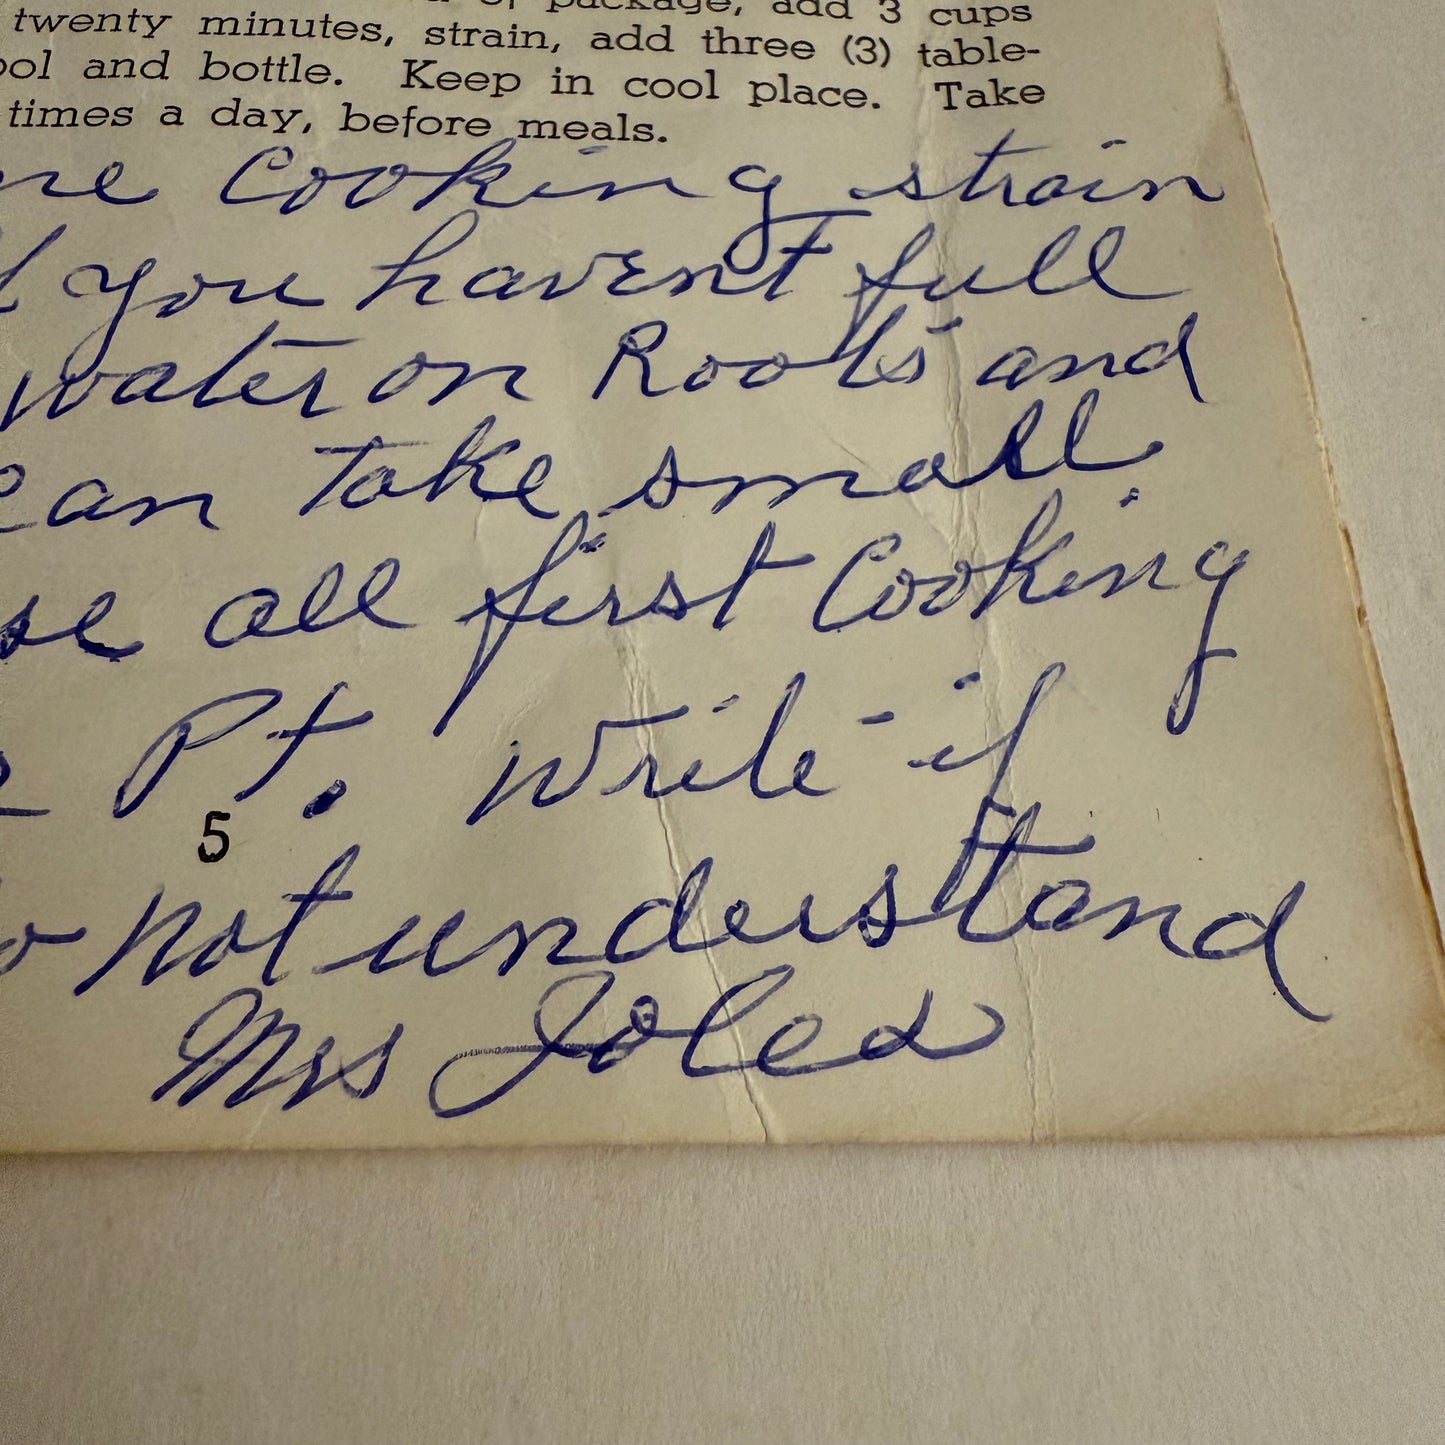 package, add 3 cups
twenty minutes, strain, add three (3) table-
ool and bottle. Keep in cool place. Take
times a day, before meals.
ne Cooking strain
you havent full
water on Roots and
can take small
se all first Cooking
Pt. write if
5
o not understand
Mrs